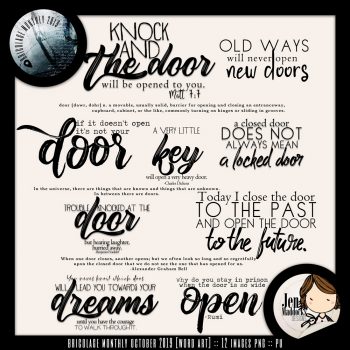 BRICOLAGE MONTHLY 2019
KNOCK
AND
the door
will be opened to you.
Matt 7:7
OLD WAYS
will never open
new doors
door [dawr, dohr] n. a movable, usually solid, barrier for opening and closing an entranceway,
cupboard, cabinet, or the like, commonly turning on hinges or sliding in grooves.
if it doesn't open
it's not your
door
A VERY LITTLE
key
will open a very heavy door.
-Charles Dickens
a closed door
DOES NOT
ALWAYS MEAN
a locked door
In the universe, there are things that are known and things that are unknown.
In between there are doors.
TROUBLE KNOCKED AT THE
door
but hearing laughter,
hurried away.
Today I close the door
TO THE PAST
AND OPEN THE DOOR
to the future.
When one door closes, another opens; but we often look so long and so regretfully
upon the closed door that we do not see the one that has opened for us.
-Alexander Graham Bell
You never know which door
WILL LEAD YOU TOWARDS YOUR
dreams
until you have the courage
TO WALK THROUGH IT.
why do you stay in prison
when the door is so wide
open
-Rumi
Jen
Maddocks
BRICOLAGE MONTHLY OCTOBER 2019 [WORD ART] :: 12 IMAGES PNG :: PU